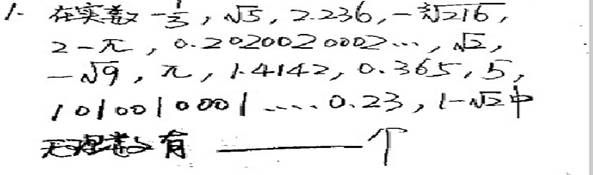 1. 在实数 -1/3, √5, 2.236, -∛216,
2-π, 0.2020020002…, √2,
-√9, π, 1.4142, 0.365, 5,
1010010001…. 0.23, 1-√2中
无理数有 ______ 个